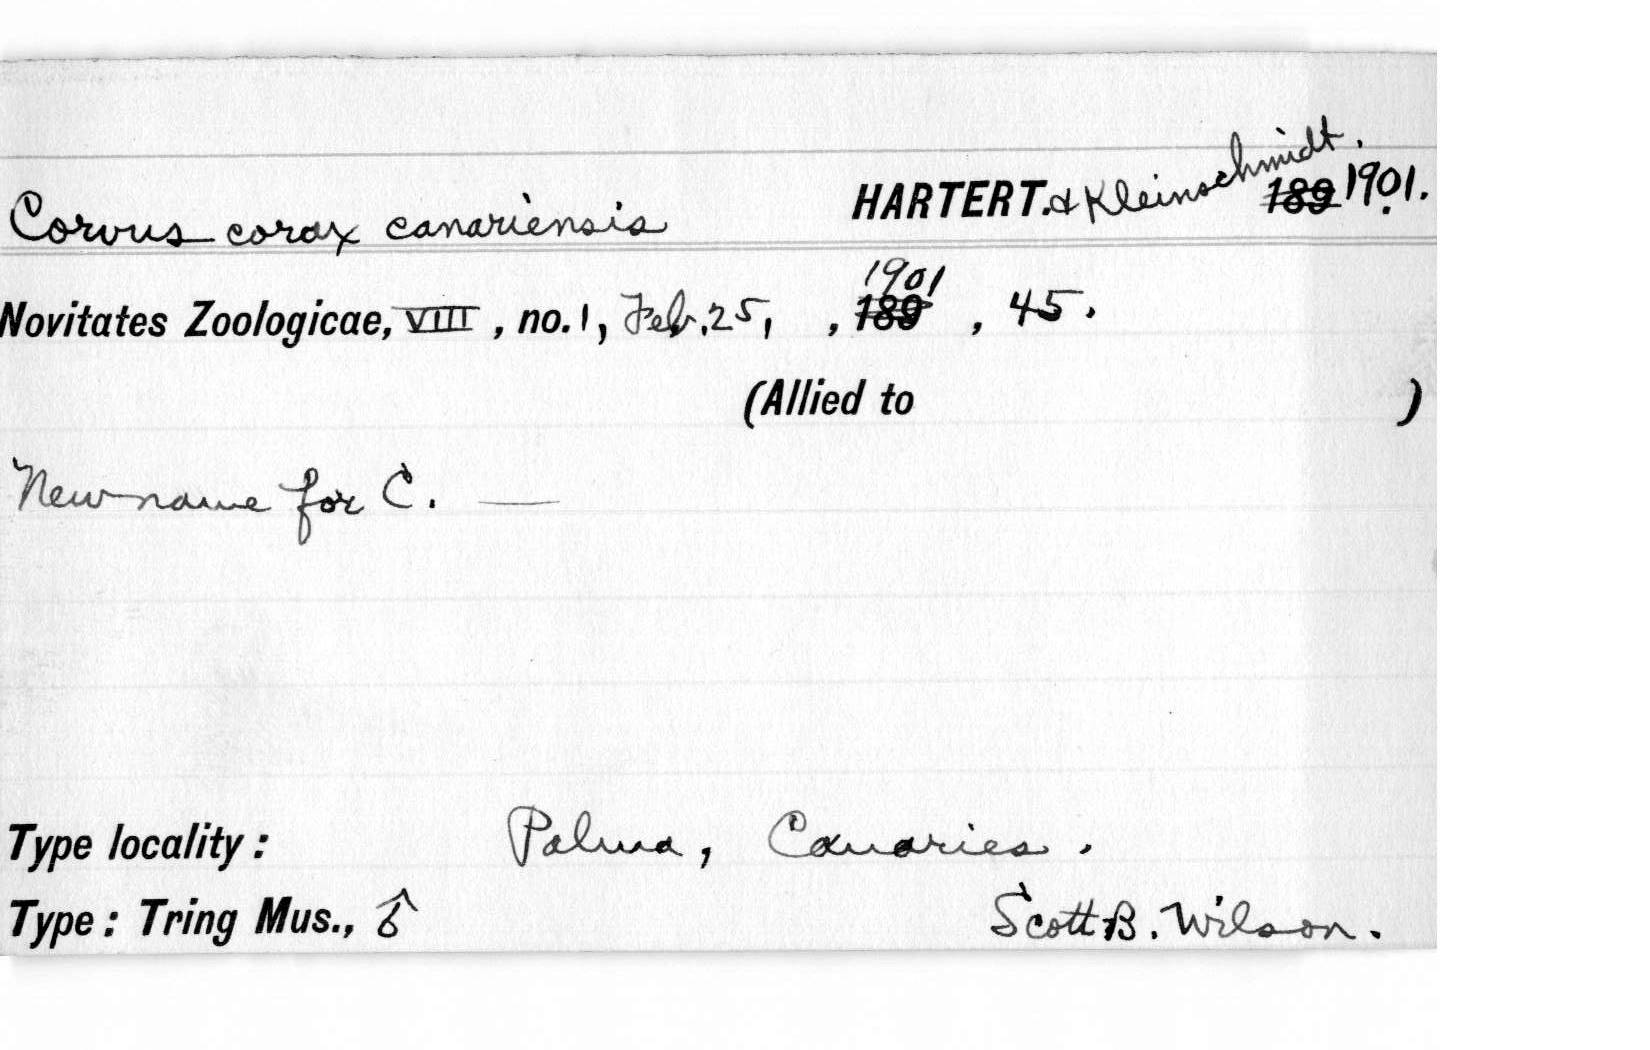 Corvus corax canariensis HARTERT. & Kleinschmidt. 189 1901.
Novitates Zoologicae, VIII, no. 1, Feb. 25, , 189 1901, 45.
(Allied to )
New name for C. —
Type locality: Palma, Canaries.
Type: Tring Mus., ♂ Scott B. Wilson.